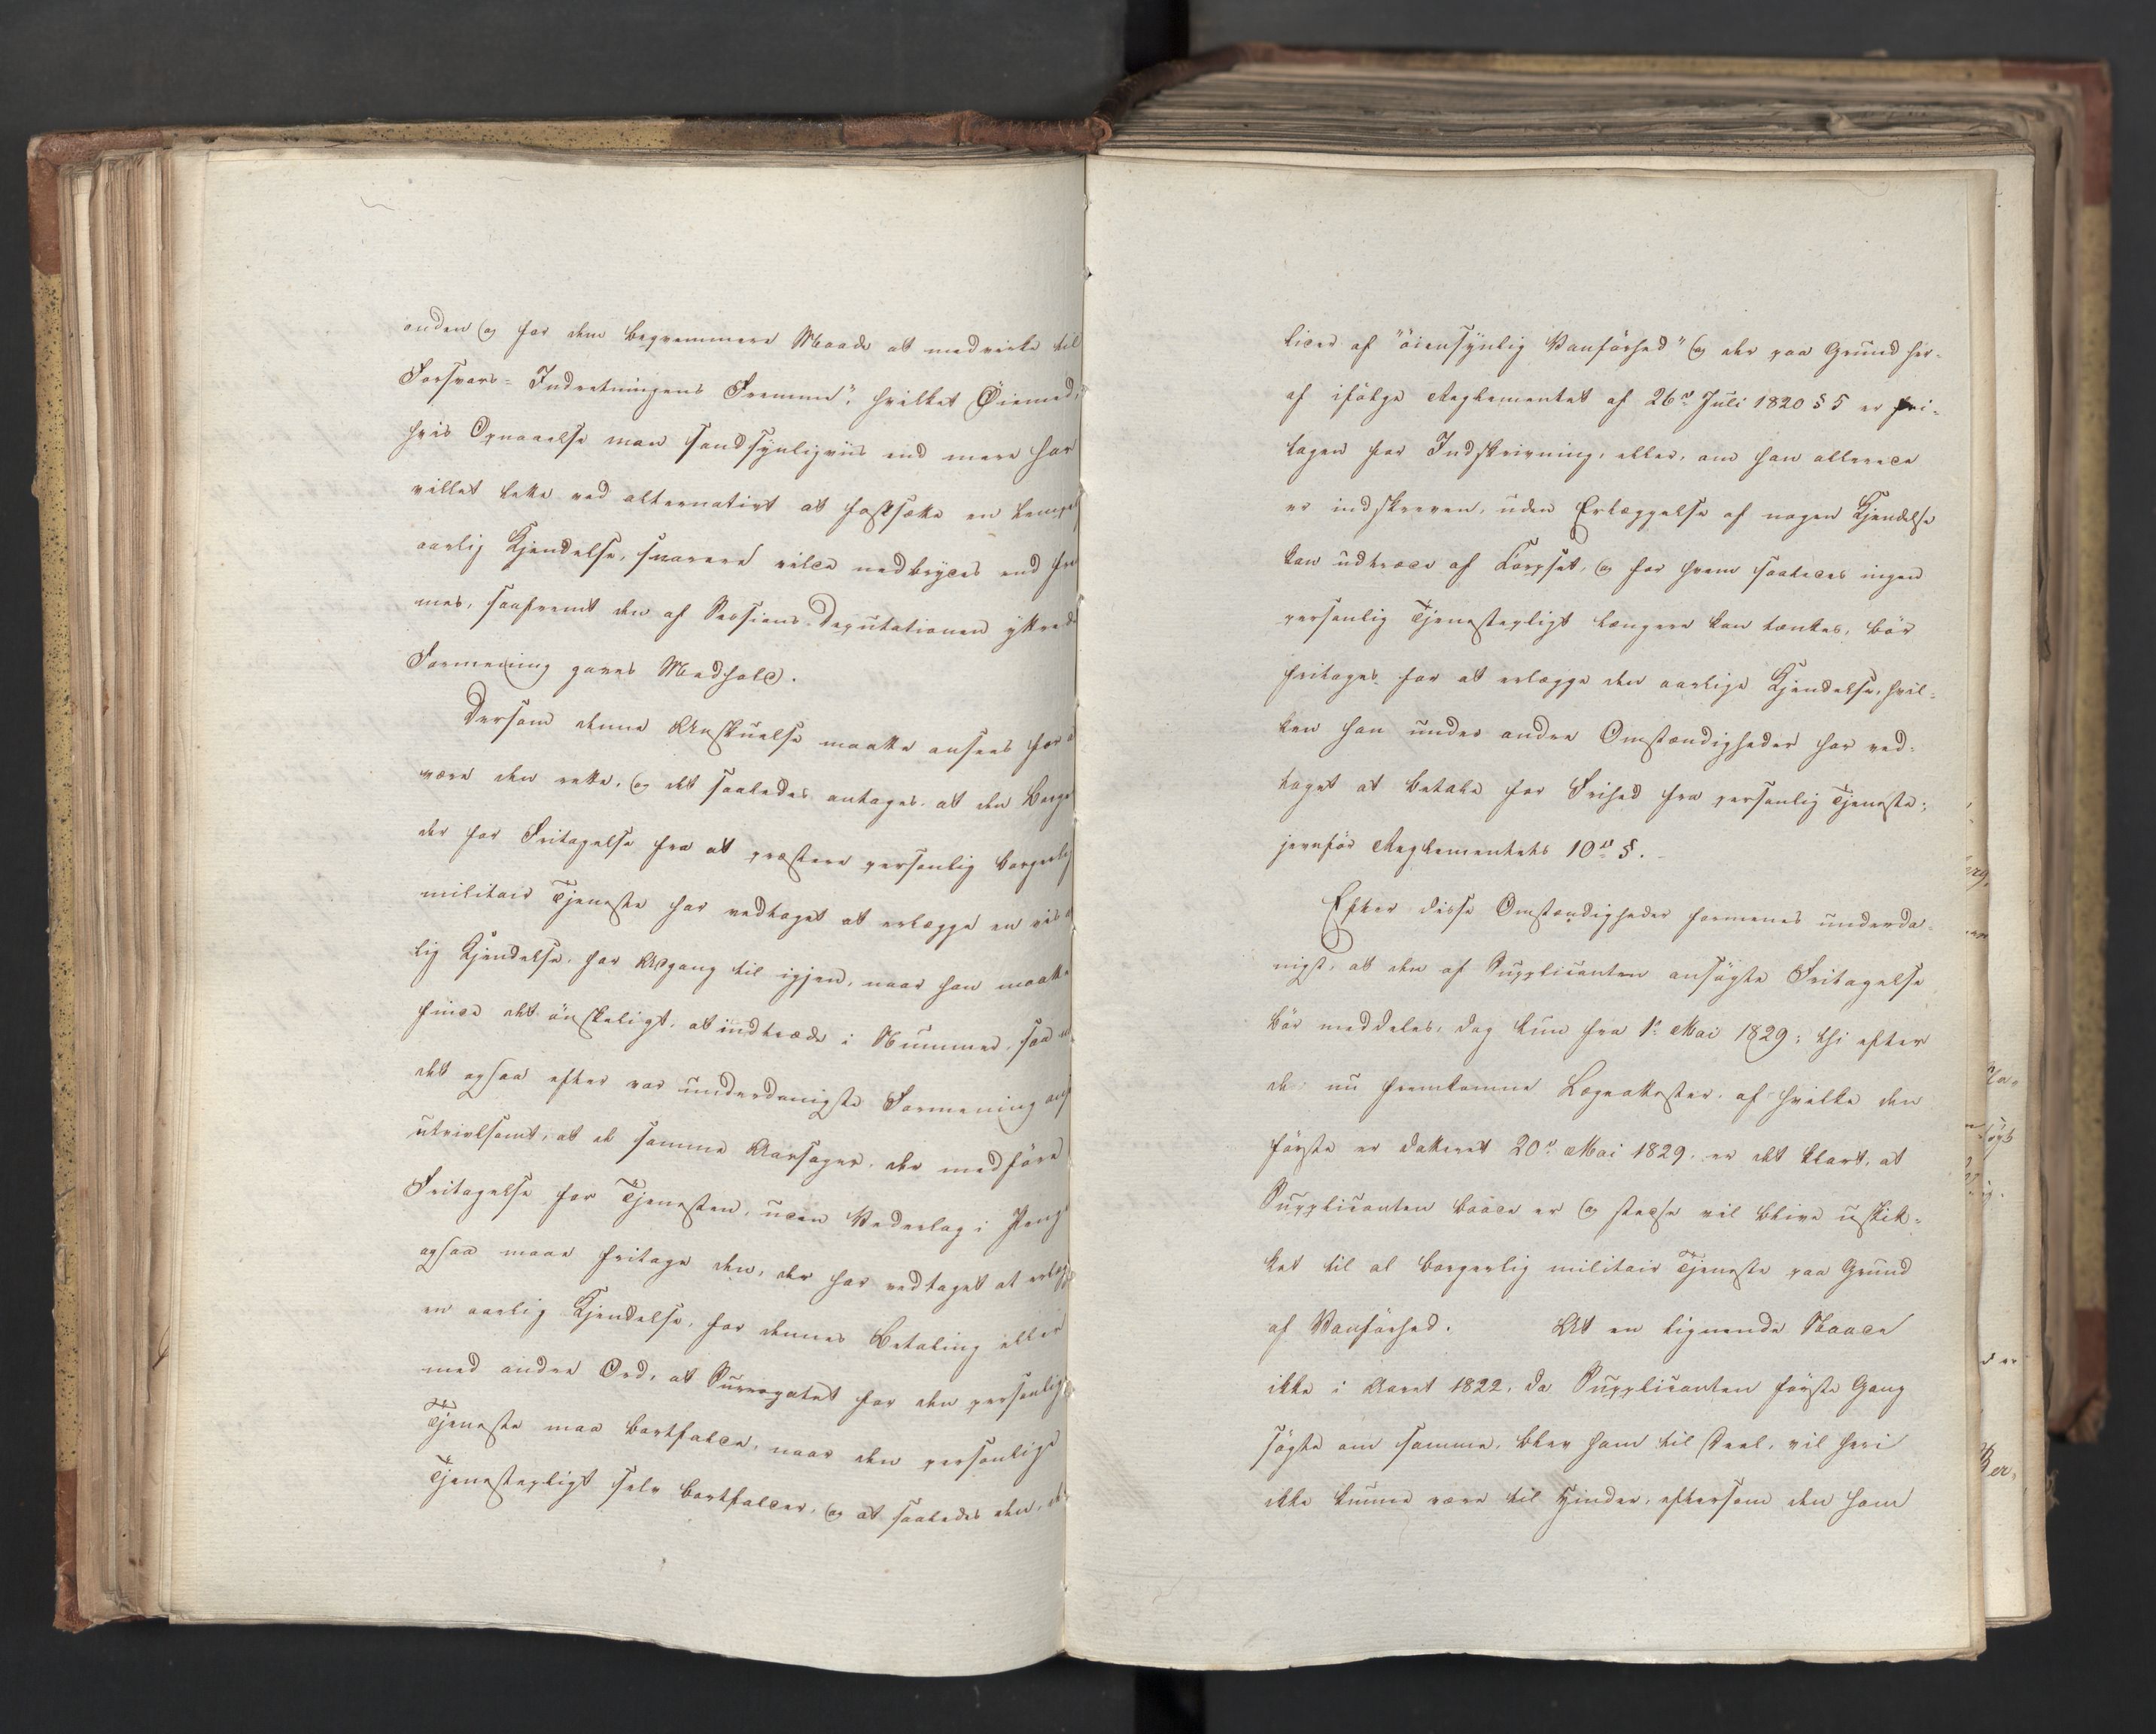 anden og for dem beqvemmere Maade at medvirke til
Forsvars-Indretningens Fremme", hvilket Øiemed,
hvis Opnaaelse man sandsynligviis end mere har
villet lette ved alternativt at fastsætte en lempel
aarlig Kjendelse, snarere vilde nedbrydes end frem
mes, saafremt den af Sessions-Deputationen yttrede
Formening gaves Medhold.
Dersom denne Anskuelse maatte ansees for a
være den rette, og det saaledes antages, at den Borger
der for Fritagelse fra at præstere personlig borgerlig
militair Tjeneste har vedtaget at erlægge en vis a
lig Kjendelse, har Adgang til igjen, naar han maatte
finde det ønskeligt, at indtræde i Nummer, saa
det ogsaa efter vor underdanigste Formening
utvivlsomt, at de samme Aarsager, der medføre
Fritagelse for Tjenesten, uden Vederlag i Penge
ogsaa maae fritage den, der har vedtaget at erlægge
en aarlig Kjendelse, for dennes Betaling eller
med andre Ord, at Surrogatet for den personlige
Tjeneste maa bortfalde, naar den personlige
Tjenestepligt selv bortfalder, og at saaledes den, d
lider af "öiensynlig Vanförhed" og der paa Grund her-
af ifölge Reglementet af 26de Juli 1820 § 5 er fri-
tagen for Indskrivning, eller, om han allerede
er indskreven, uden Erlæggelse af nogen Kjendelse
kan udtræde af Corpset, og for hvem saaledes ingen
personlig Tjenestepligt længere kan tænkes, bör
fritages for at erlægge den aarlige Kjendelse, hvil-
ken han under andre Omstændigheder har ved-
taget at betale for Frihed fra personlig Tjeneste;
jevnför Reglementets 10de §.
Efter disse Omstændigheder formenes underda-
nigst, at den af Supplicanten ansögte Fritagelse
bör meddeles, dog kun fra 1ste Mai 1829; thi efter
de nu fremkomne Lægeattester, af hvilke den
förste er datteret 20de Mai 1829, er det klart, at
Supplicanten baade er og stedse vil blive uskik-
ket til al borgerlig militair Tjeneste paa Grund
af Vanförhed. At en lignende Naade
ikke i Aaret 1822, da Supplicanten förste Gang
sögte om samme, blev ham til Deel, vil heri
ikke kunne være til Hinder, eftersom den ham